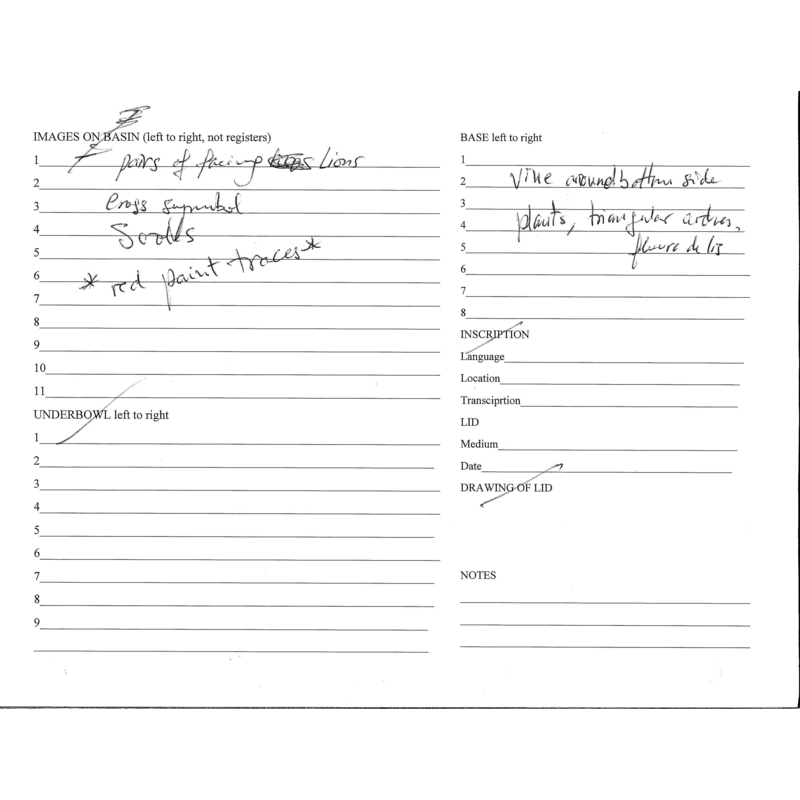 IMAGES ON BASIN (left to right, not registers)
1 pairs of facing lions
2
3 Cross symbol
4
5
6 * red paint traces *
7
8
9
10
11
UNDERBOWL left to right
1
2
3
4
5
6
7
8
9
BASE left to right
1
2 Vine around bottom side
3
4 plants, triangular arches,
5 fleure de lis
6
7
8
INSCRIPTION
Language
Location
Transciprtion
LID
Medium
Date
DRAWING OF LID
NOTES